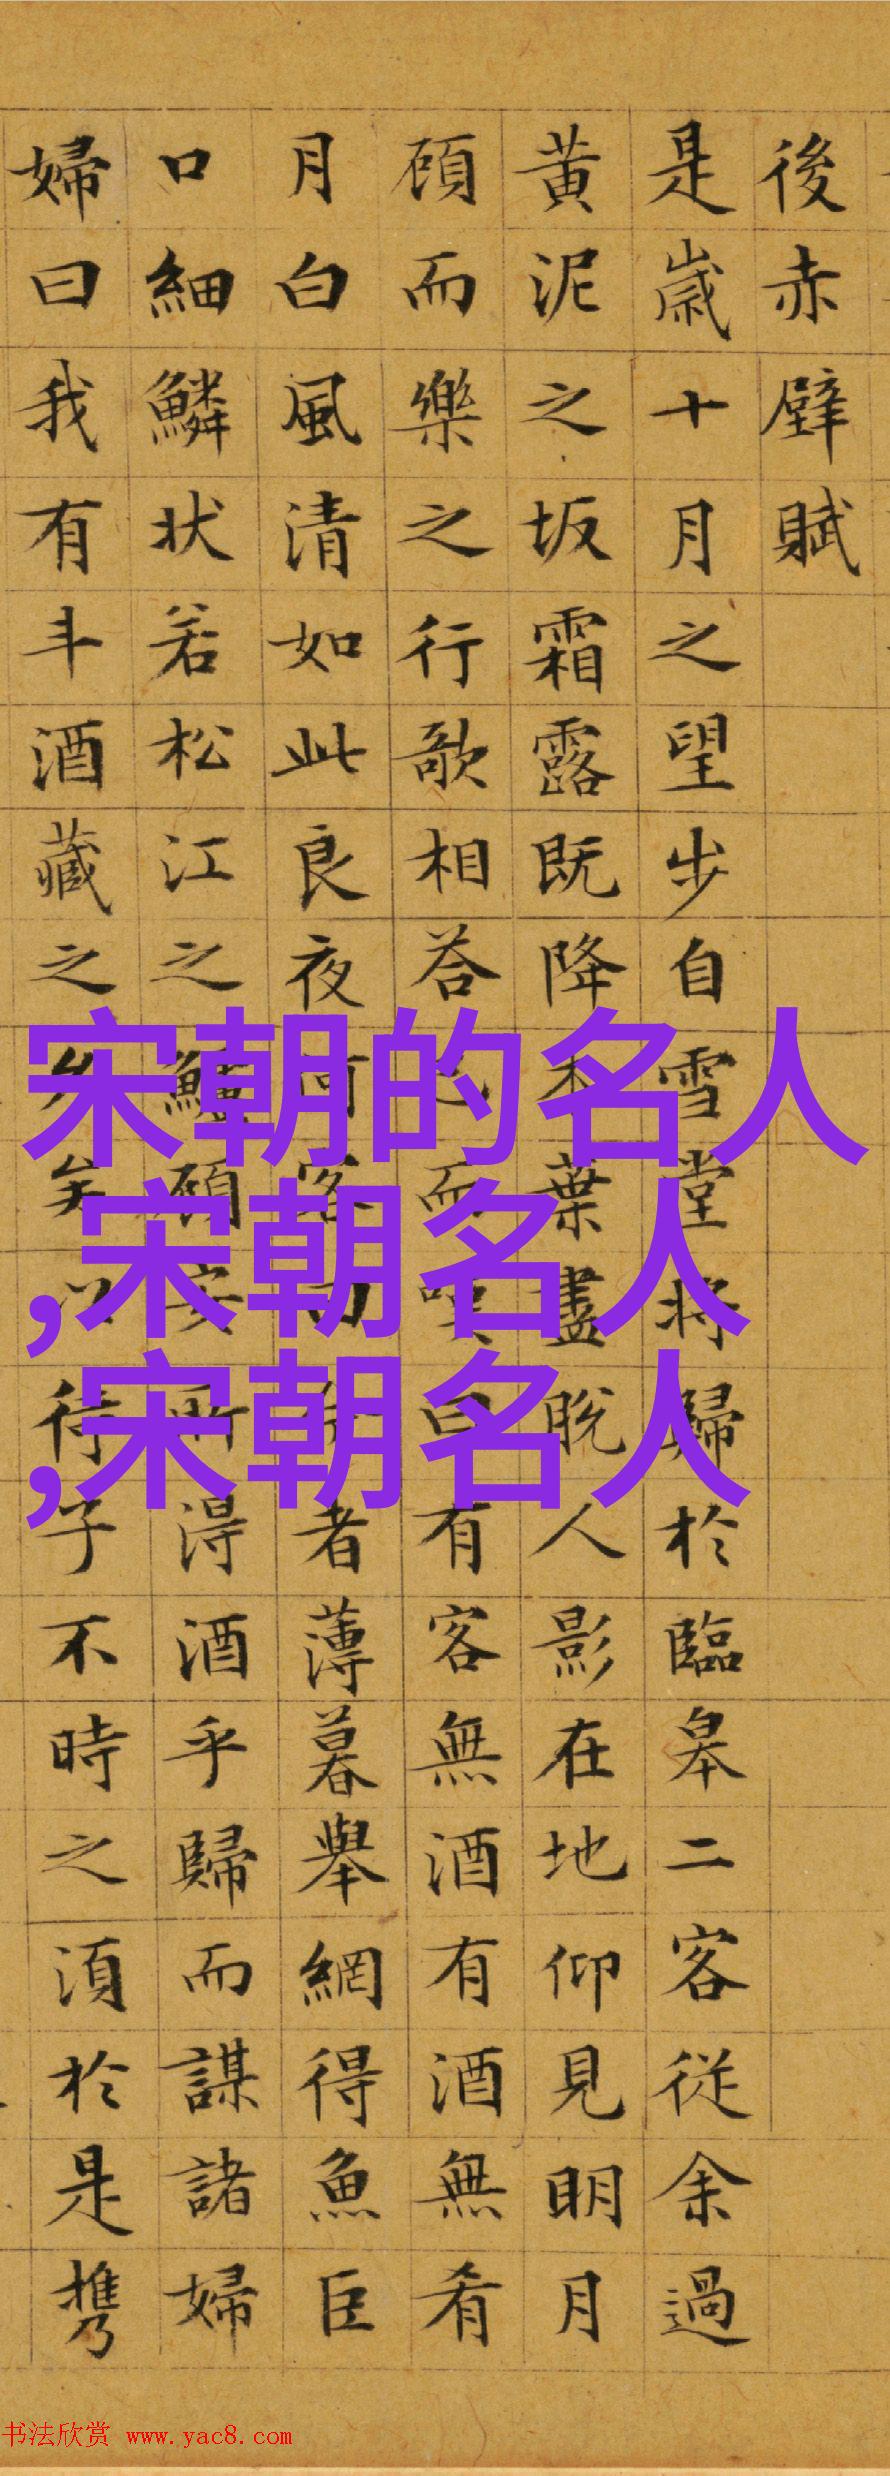 後赤壁賦
是歲十月之望步自雪堂将歸於臨皋二客從余過
黄泥之坂霜露既降木葉盡脫人影在地仰見明月
顧而樂之行歌相荅已而嘆曰有客無酒有酒無肴
月白風清如此良夜何客曰者薄暮舉網得魚巨
口細鱗状若松江之鱸顧安所得酒乎歸而謀諸婦
婦曰我有斗酒藏之久矣以待子不時之須於是携
宋朝的名人
,宋朝名人
,宋朝名人
书法欣赏 www.yac8.com